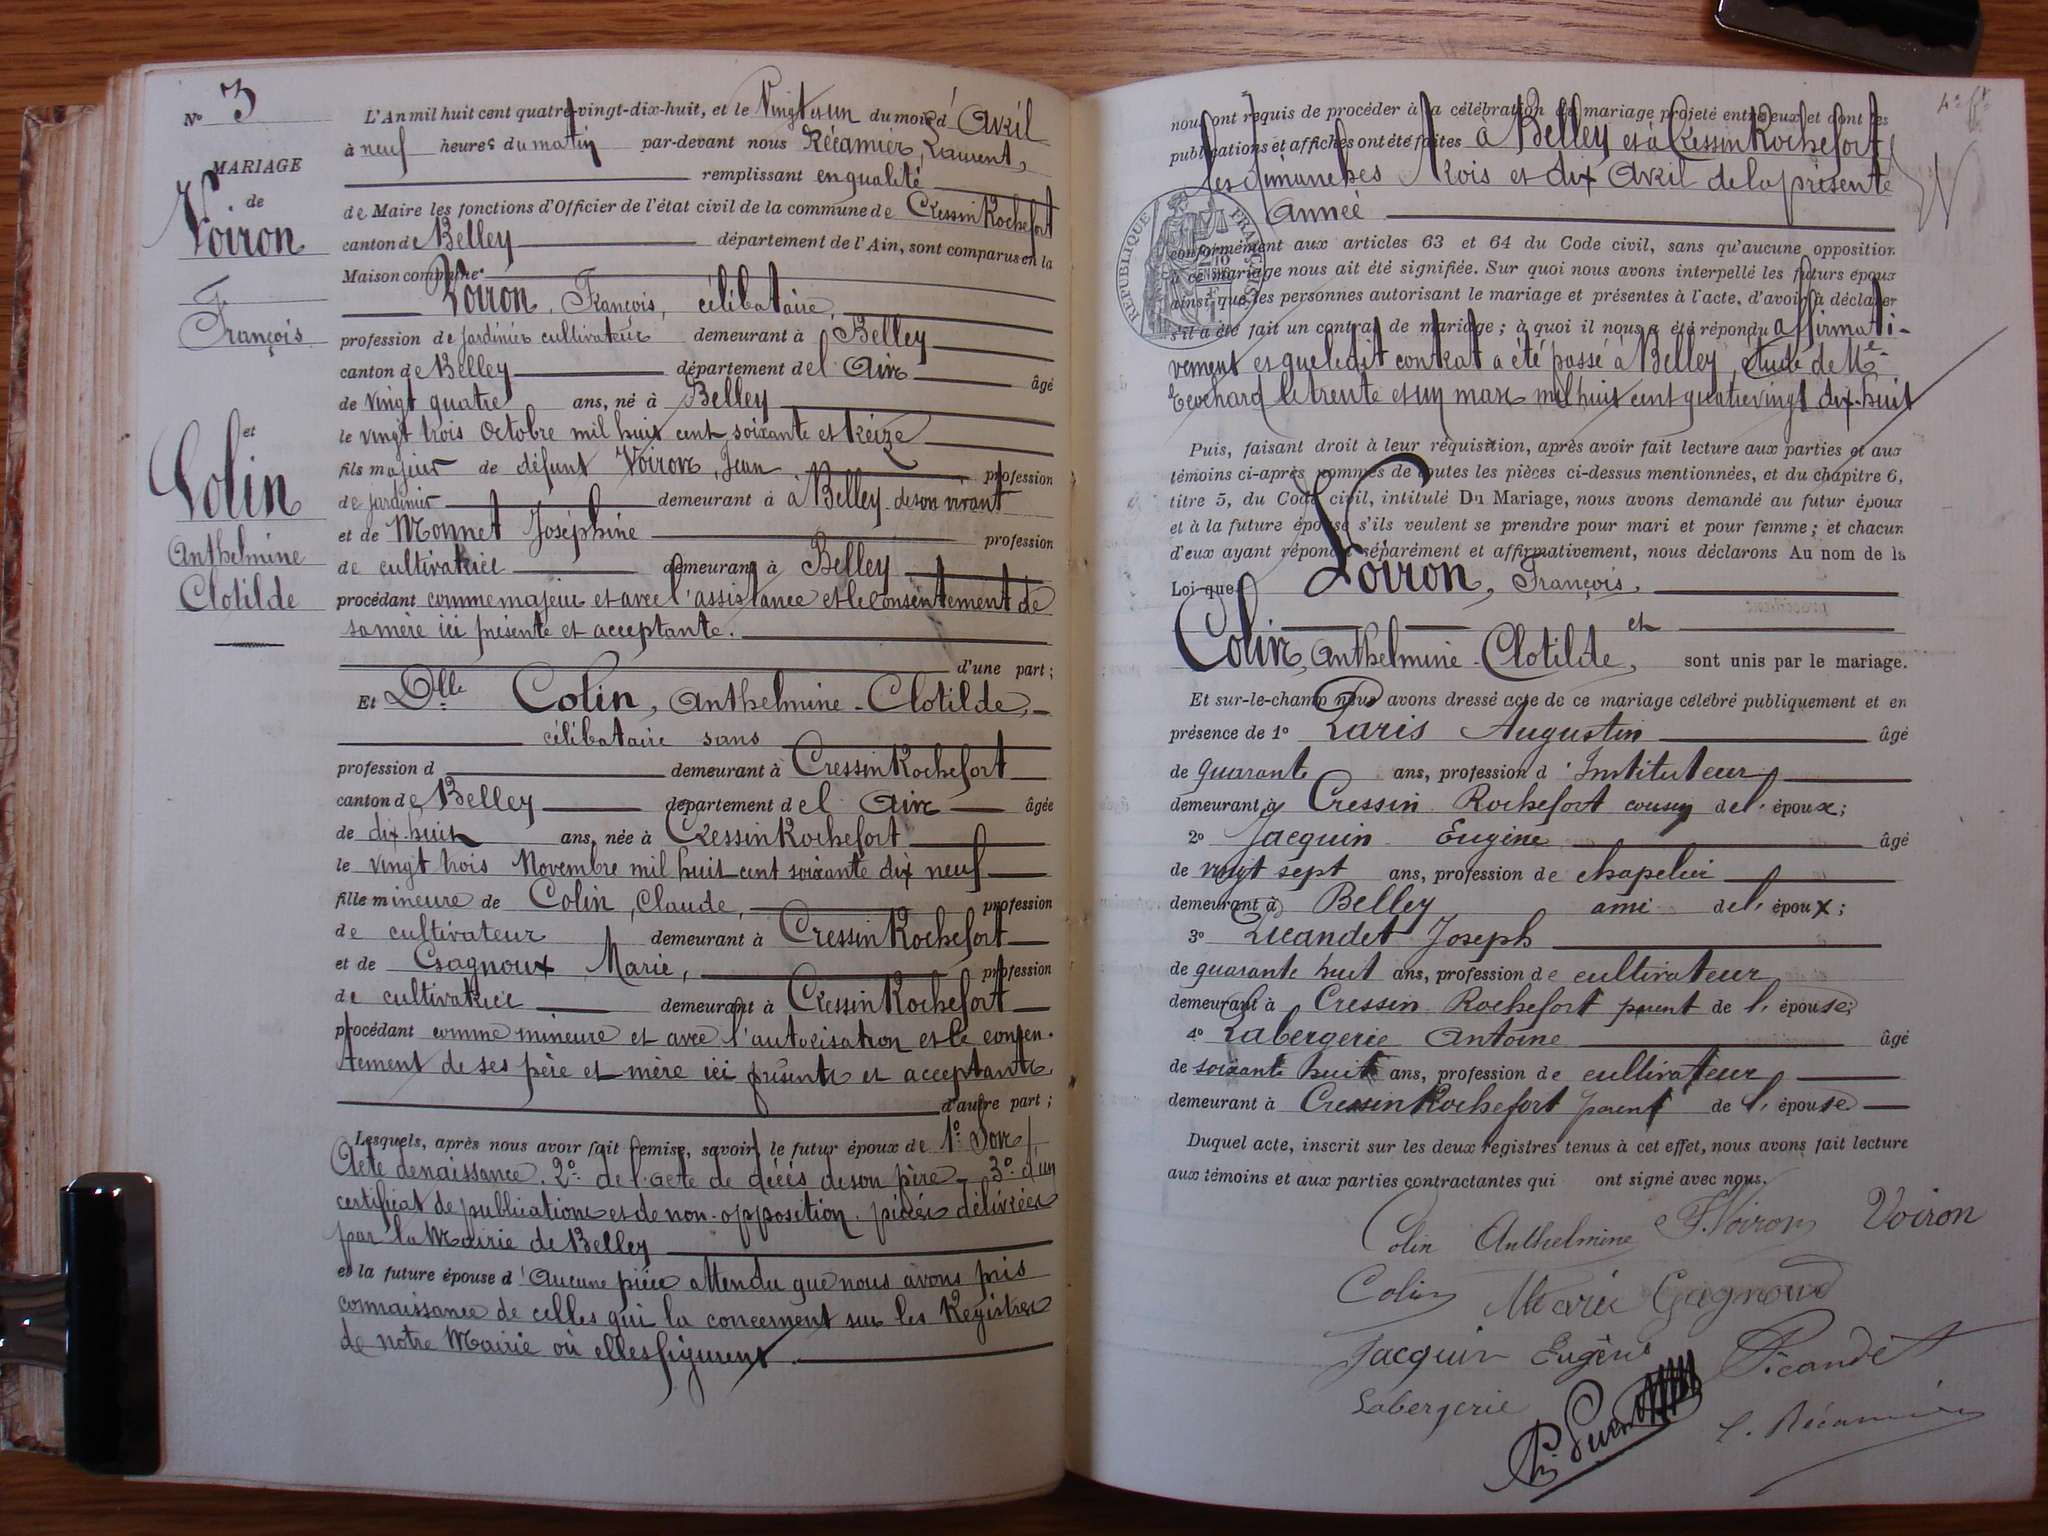 N° 3
MARIAGE
de
Voiron
François
et
Colin
Anthelmine
Clotilde
L'An mil huit cent quatre-vingt-dix-huit, et le Vingt et un du mois d'Avril
à neuf heures du matin par-devant nous Récamier, Laurent,
remplissant en qualité
de Maire les fonctions d'Officier de l'état civil de la commune de Cressin Rochefort
canton de Belley département de l'Ain, sont comparus en la
Maison commune
Voiron, François, célibataire,
profession de jardinier cultivateur demeurant à Belley
canton de Belley département de l'Ain âgé
de vingt quatre ans, né à Belley
le vingt trois Octobre mil huit cent soixante et treize
fils majeur de défunt Voiron, Jean profession
de jardinier demeurant à à Belley de son vivant
et de Monnet Joséphine profession
de cultivatrice demeurant à Belley
procédant comme majeur et avec l'assistance et le consentement de
sa mère ici présente et acceptante.
d'une part;
Et Dlle Colin, Anthelmine-Clotilde,
célibataire sans
profession d demeurant à Cressin Rochefort
canton de Belley département de l'Ain âgée
de dix-huit ans, née à Cressin Rochefort
le vingt trois Novembre mil huit cent soixante dix neuf
fille mineure de Colin, Claude, profession
de cultivateur demeurant à Cressin Rochefort
et de Gagnoux Marie, profession
de cultivatrice demeurant à Cressin Rochefort
procédant comme mineure et avec l'autorisation et le consen-
tement de ses père et mère ici présents et acceptants
d'autre part;
Lesquels, après nous avoir fait remise, savoir, le futur époux de 1° Son
Acte de naissance. 2° de l'acte de décès de son père - 3° d'un
certificat de publications et de non-opposition, pièces délivrées
par la Mairie de Belley
et la future épouse d'Aucune pièce attendu que nous avons pris
connaissance de celles qui la concernent sur les Registres
de notre Mairie où elles figurent.
nous ont requis de procéder à la célébration du mariage projeté entre eux et dont les
publications et affiches ont été faites à Belley et à Cressin Rochefort
les dimanches trois et dix Avril de la présente
année
RÉPUBLIQUE FRANÇAISE
conformément aux articles 63 et 64 du Code civil, sans qu'aucune opposition
à ce mariage nous ait été signifiée. Sur quoi nous avons interpellé les futurs époux
ainsi que les personnes autorisant le mariage et présentes à l'acte, d'avoir à déclarer
s'il a été fait un contrat de mariage; à quoi il nous a été répondu affirmati-
vement et que ledit contrat a été passé à Belley, étude de Me
le trente et un mars mil huit cent quatre vingt dix-huit
Puis, faisant droit à leur réquisition, après avoir fait lecture aux parties et aux
témoins ci-après nommés de toutes les pièces ci-dessus mentionnées, et du chapitre 6,
titre 5, du Code civil, intitulé Du Mariage, nous avons demandé au futur époux
et à la future épouse s'ils veulent se prendre pour mari et pour femme; et chacun
d'eux ayant répondu séparément et affirmativement, nous déclarons Au nom de la
Loi que Voiron, François,
et
Colin, Anthelmine-Clotilde, sont unis par le mariage.
Et sur-le-champ nous avons dressé acte de ce mariage célébré publiquement et en
présence de 1° Laris Augustin âgé
de quarante ans, profession d'Instituteur
demeurant à Cressin Rochefort cousin de l'époux;
2° Jacquin Eugène âgé
de vingt sept ans, profession de chapelier
demeurant à Belley ami de l'époux;
3° Picandet Joseph
de quarante huit ans, profession de cultivateur
demeurant à Cressin Rochefort parent de l'épouse;
4° Labergerie Antoine âgé
de soixante huit ans, profession de cultivateur
demeurant à Cressin Rochefort parent de l'épouse
Duquel acte, inscrit sur les deux registres tenus à cet effet, nous avons fait lecture
aux témoins et aux parties contractantes qui ont signé avec nous.
Colin Anthelmine F. Voiron Voiron
Colin Marie Gagnoux
Jacquin Eugène Picandet
Labergerie
L. Récamier